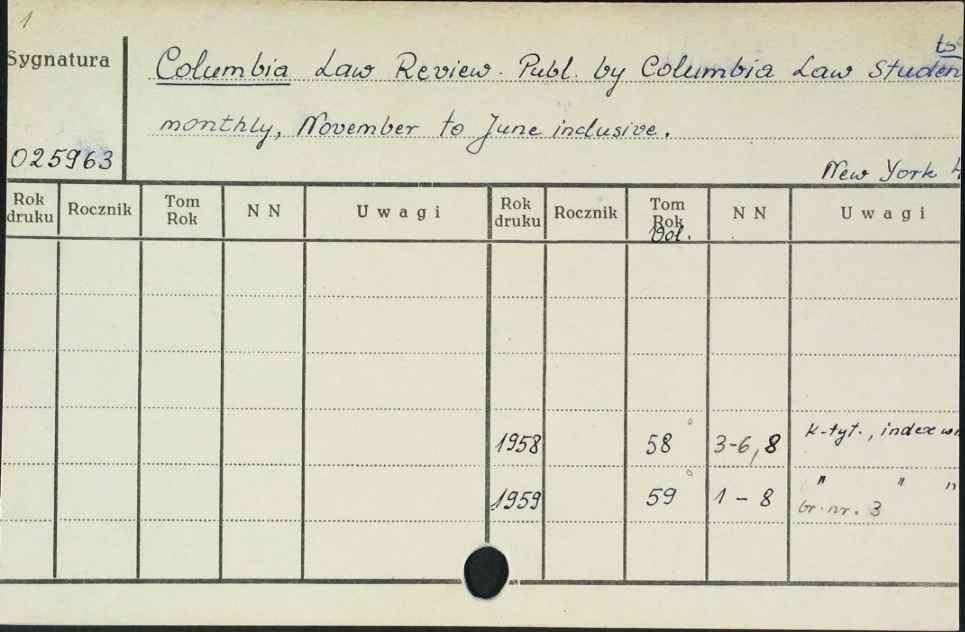 1
Sygnatura
025963
Columbia Law Review. Publ. by Columbia Law Students
monthly, November to June inclusive.
New York
Rok druku Rocznik Tom Rok NN Uwagi Rok druku Rocznik Tom Rok Vol. NN Uwagi
1958 58 3-6, 8 k-tyt., index
1959 59 1-8 " " "
br. nr. 3